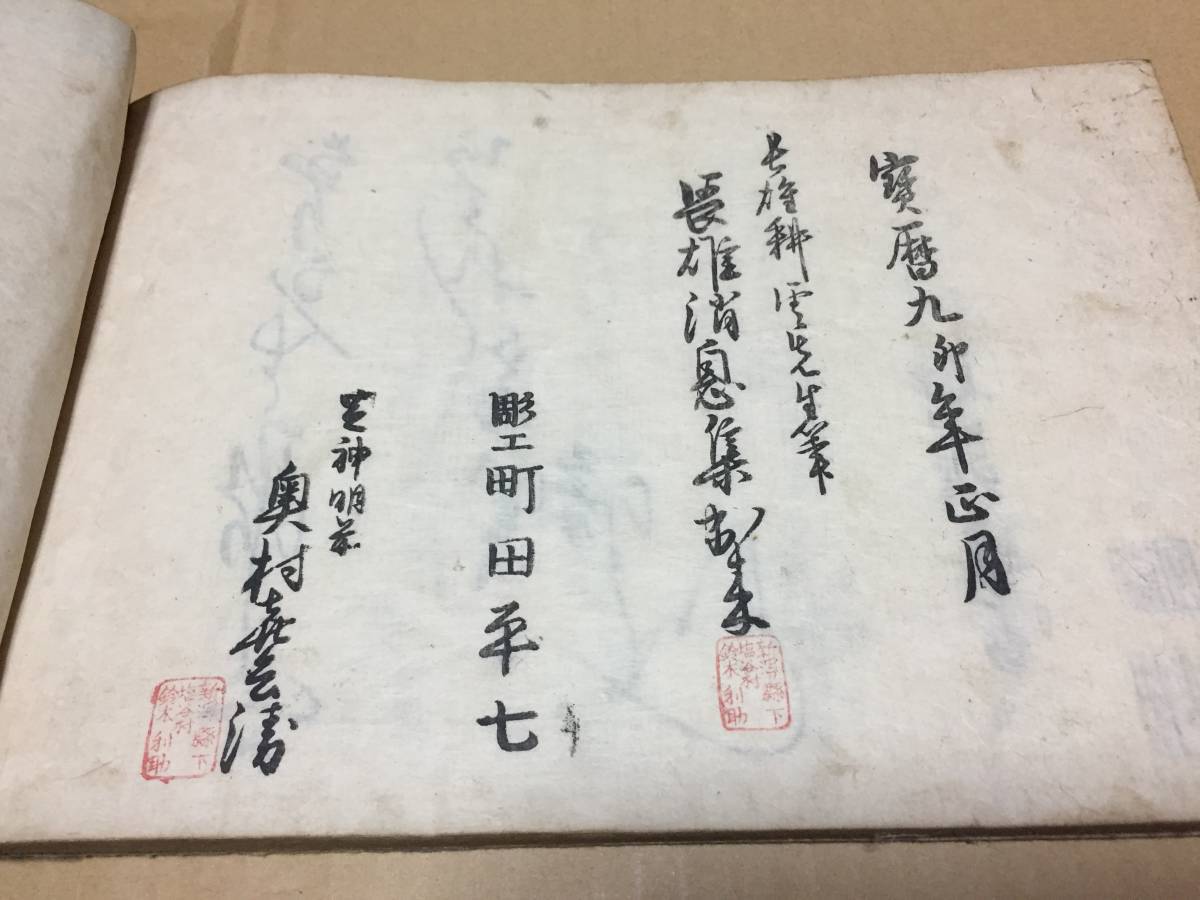 寶暦九卯年正月
長雄耕雲先生筆
長雄消息集出来
彫工町田平七
芝神明前
奥村喜兵衛
新潟縣下
塩谷村
鈴木利助
新潟縣下
塩谷村
鈴木利助